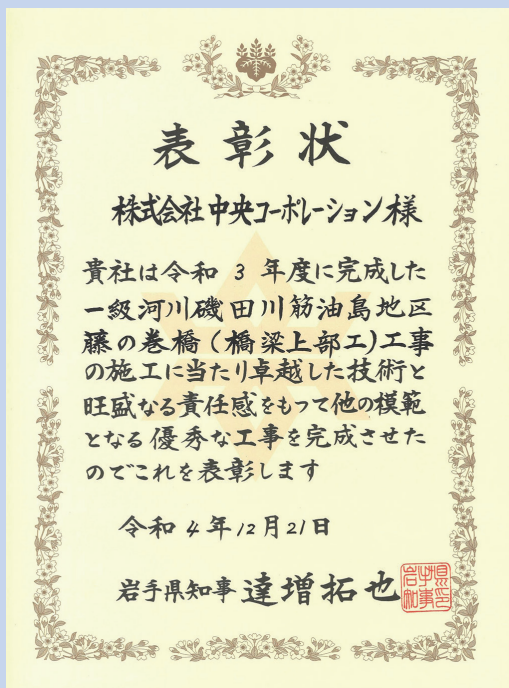 表彰状
株式会社中央コーポレーション様
貴社は令和3年度に完成した
一級河川磯田川筋油島地区
藤の巻橋(橋梁上部工)工事
の施工に当たり卓越した技術と
旺盛なる責任感をもって他の模範
となる優秀な工事を完成させた
のでこれを表彰します
令和4年12月21日
岩手県知事達増拓也